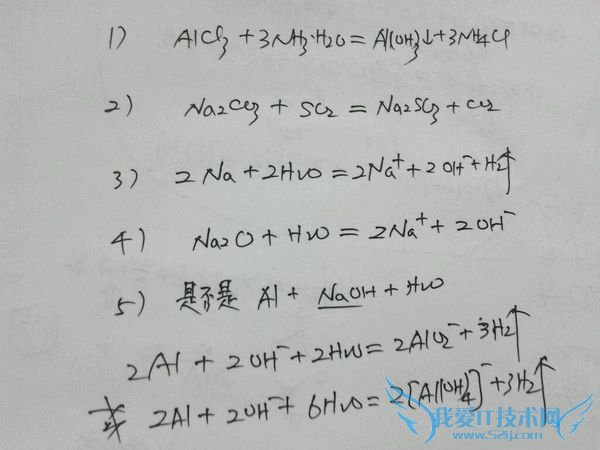 1) AlCl₃ + 3NH₃·H₂O = Al(OH)₃↓ + 3NH₄Cl
2) Na₂CO₃ + SO₂ = Na₂SO₃ + CO₂
3) 2Na + 2H₂O = 2Na⁺ + 2OH⁻ + H₂↑
4) Na₂O + H₂O = 2Na⁺ + 2OH⁻
5) 是否是 Al + NaOH + H₂O
2Al + 2OH⁻ + 2H₂O = 2AlO₂⁻ + 3H₂↑
或 2Al + 2OH⁻ + 6H₂O = 2[Al(OH)₄]⁻ + 3H₂↑
我爱IT技术网
www.52ij.com